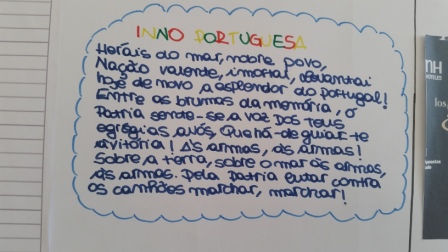 INNO PORTUGUESA
Heróis do mar, nobre povo,
Nação valente, imortal, levantai
hoje de novo a esplendor do portugal!
Entre as brumas da memória, ó
Patria sente-se a voz dos teus
egrégias avós, Que há-de guiar-te
a vitória! Às armas, às armas!
Sobre a terra, sobre o mar às armas,
às armas. Pela Patria lutar contra
os canhões marchar, marchar!
NH
HOTELES
los